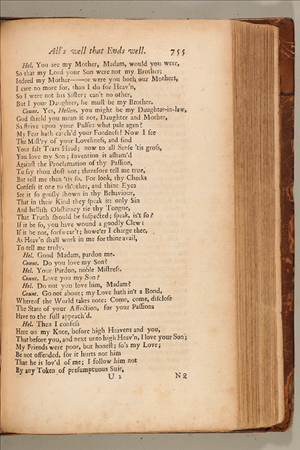 All's well that Ends well. 755
Hel. You are my Mother, Madam, would you were,
So that my Lord your Son were not my Brother;
Indeed my Mother——or were you both our Mothers,
I care no more for, than I do for Heav'n,
So I were not his Sister; can't no other,
But I your Daughter, he must be my Brother.
Count. Yes, Hellen, you might be my Daughter-in-law,
God shield you mean it not, Daughter and Mother,
So strive upon your Pulse: what pale agen?
My Fear hath catch'd your Fondness! Now I see
The Mist'ry of your Loveliness, and find
Your salt Tears Head; now to all Sense 'tis gross,
You love my Son; Invention is asham'd
Against the Proclamation of thy Passion,
To say thou dost not; therefore tell me true,
But tell me then 'tis so. For look, thy Cheeks
Confess it one to th'other, and thine Eyes
See it so grosly shown in thy Behaviour,
That in their Kind they speak it: only Sin
And hellish Obstinacy tie thy Tongue,
That Truth should be suspected; speak, is't so?
If it be so, you have wound a goodly Clew:
If it be not, forswear't; howe'er I charge thee,
As Heav'n shall work in me for thine avail,
To tell me truly.
Hel. Good Madam, pardon me.
Count. Do you love my Son?
Hel. Your Pardon, noble Mistress.
Count. Love you my Son?
Hel. Do not you love him, Madam?
Count. Go not about; my Love hath in't a Bond,
Whereof the World takes note: Come, come, disclose
The State of your Affection, for your Passions
Have to the full appeach'd.
Hel. Then I confess
Here on my Knee, before high Heavens and you,
That before you, and next unto high Heav'n, I love your Son;
My Friends were poor, but honest; so's my Love;
Be not offended, for it hurts not him
That he is lov'd of me; I follow him not
By any Token of presumptuous Suit,
U 2 No